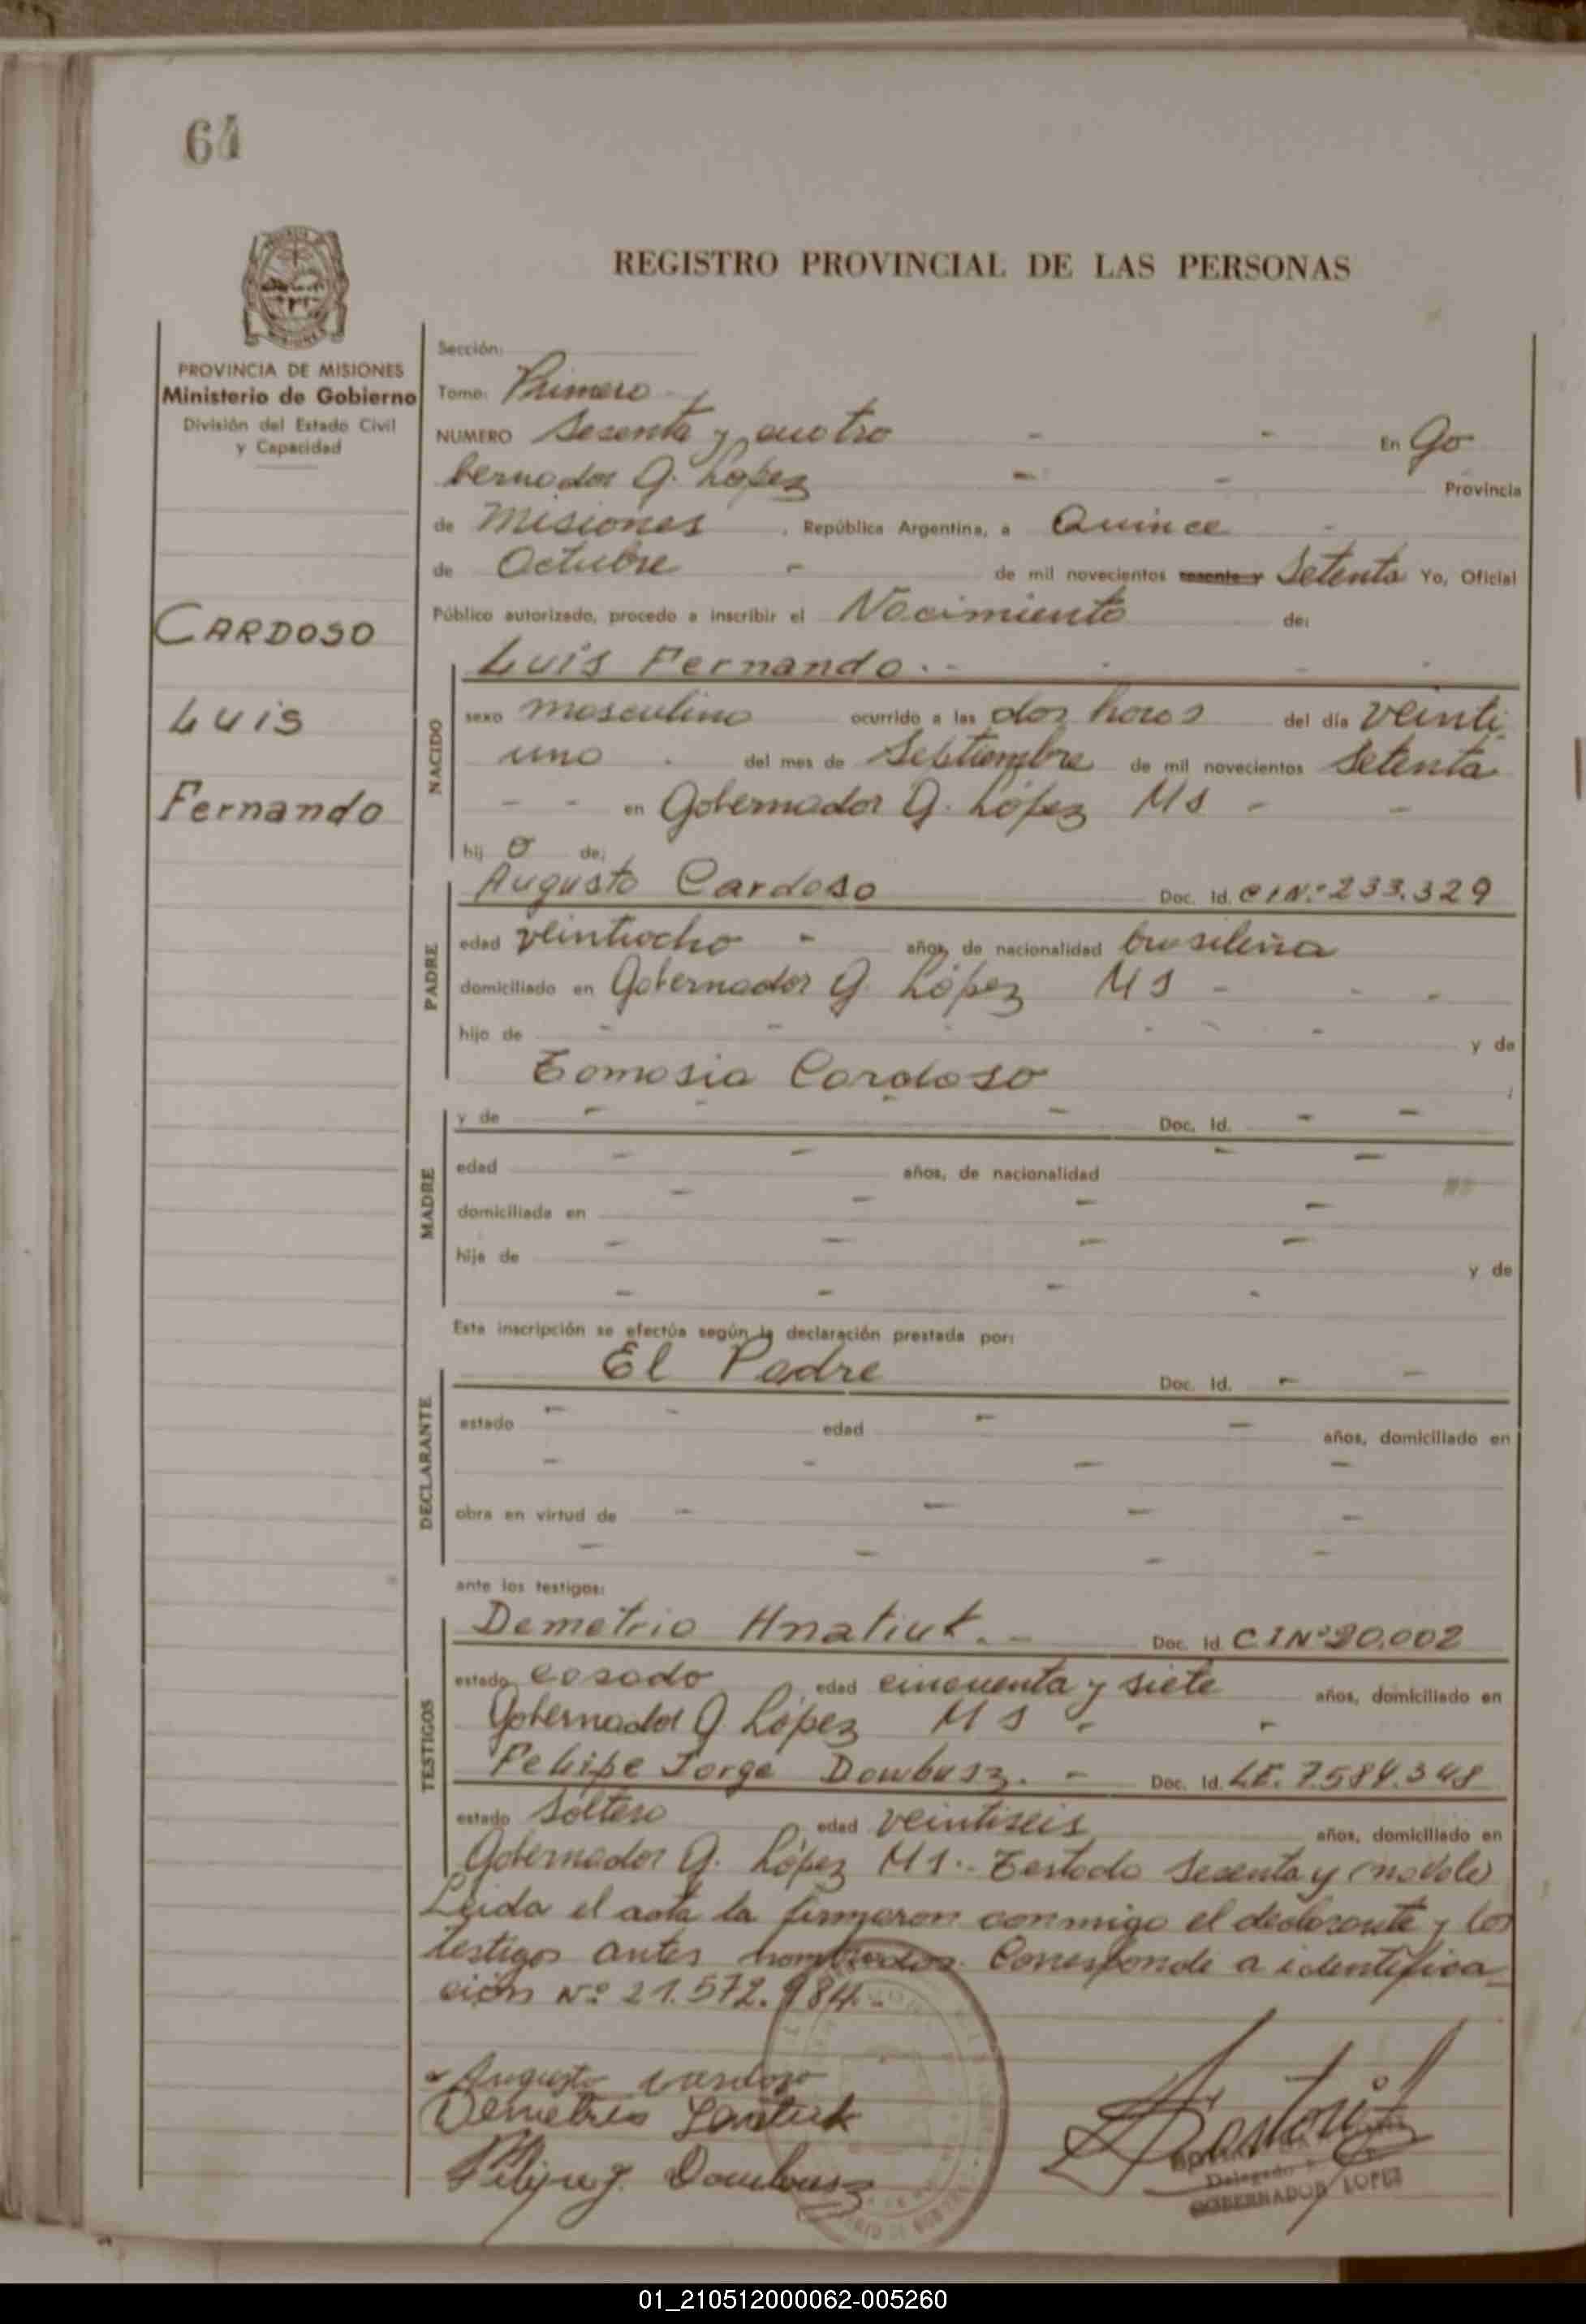 64
REGISTRO PROVINCIAL DE LAS PERSONAS
PROVINCIA DE MISIONES
Ministerio de Gobierno
División del Estado Civil
y Capacidad
CARDOSO
Luis
Fernando
Sección:
Tomo: Primero
NUMERO Sesenta y cuatro - - En Go
bernador G. López - - Provincia
de Misiones , República Argentina, a Quince -
de Octubre - de mil novecientos sesenta y Setenta Yo, Oficial
Público autorizado, procedo a inscribir el Nacimiento de:
NACIDO
Luis Fernando. -
sexo masculino ocurrido a las dos horas del día veinti
uno del mes de Septiembre de mil novecientos Setenta
- - en Gobernador G. López Ms - -
hij o de:
PADRE
Augusto Cardoso Doc. Id. CI Nº 233.329
edad veintiocho - años, de nacionalidad brasileña
domiciliado en Gobernador G. López Ms - - -
hijo de - - - - y de
Tomasia Cardoso
MADRE
y de - - - Doc. Id. - -
edad - - años, de nacionalidad - -
domiciliada en - - - -
hija de - - - - y de
- - - -
Esta inscripción se efectúa según la declaración prestada por:
DECLARANTE
El Padre Doc. Id. - -
estado - - edad - - años, domiciliado en
- - - -
obra en virtud de - - - -
- - - -
ante los testigos:
TESTIGOS
Demetrio Hnatiuk. - Doc. Id. CI Nº 20.002
estado casado edad cincuenta y siete años, domiciliado en
Gobernador G. López Ms - -
Felipe Jorge Dombusz. - Doc. Id. LE. 7.584.348
estado Soltero edad veintiseis años, domiciliado en
Gobernador G. López Ms.- Testado Sesenta y (no vale)
Leida el acta la firmaron conmigo el declarante y los
testigos antes nombrados. Corresponde a identifica_
ción Nº 21.572.984.-
Augusto Cardoso
Demetrio
Felipe J. Dombusz
Delegado
GOBERNADOR LOPEZ
01_210512000062-005260